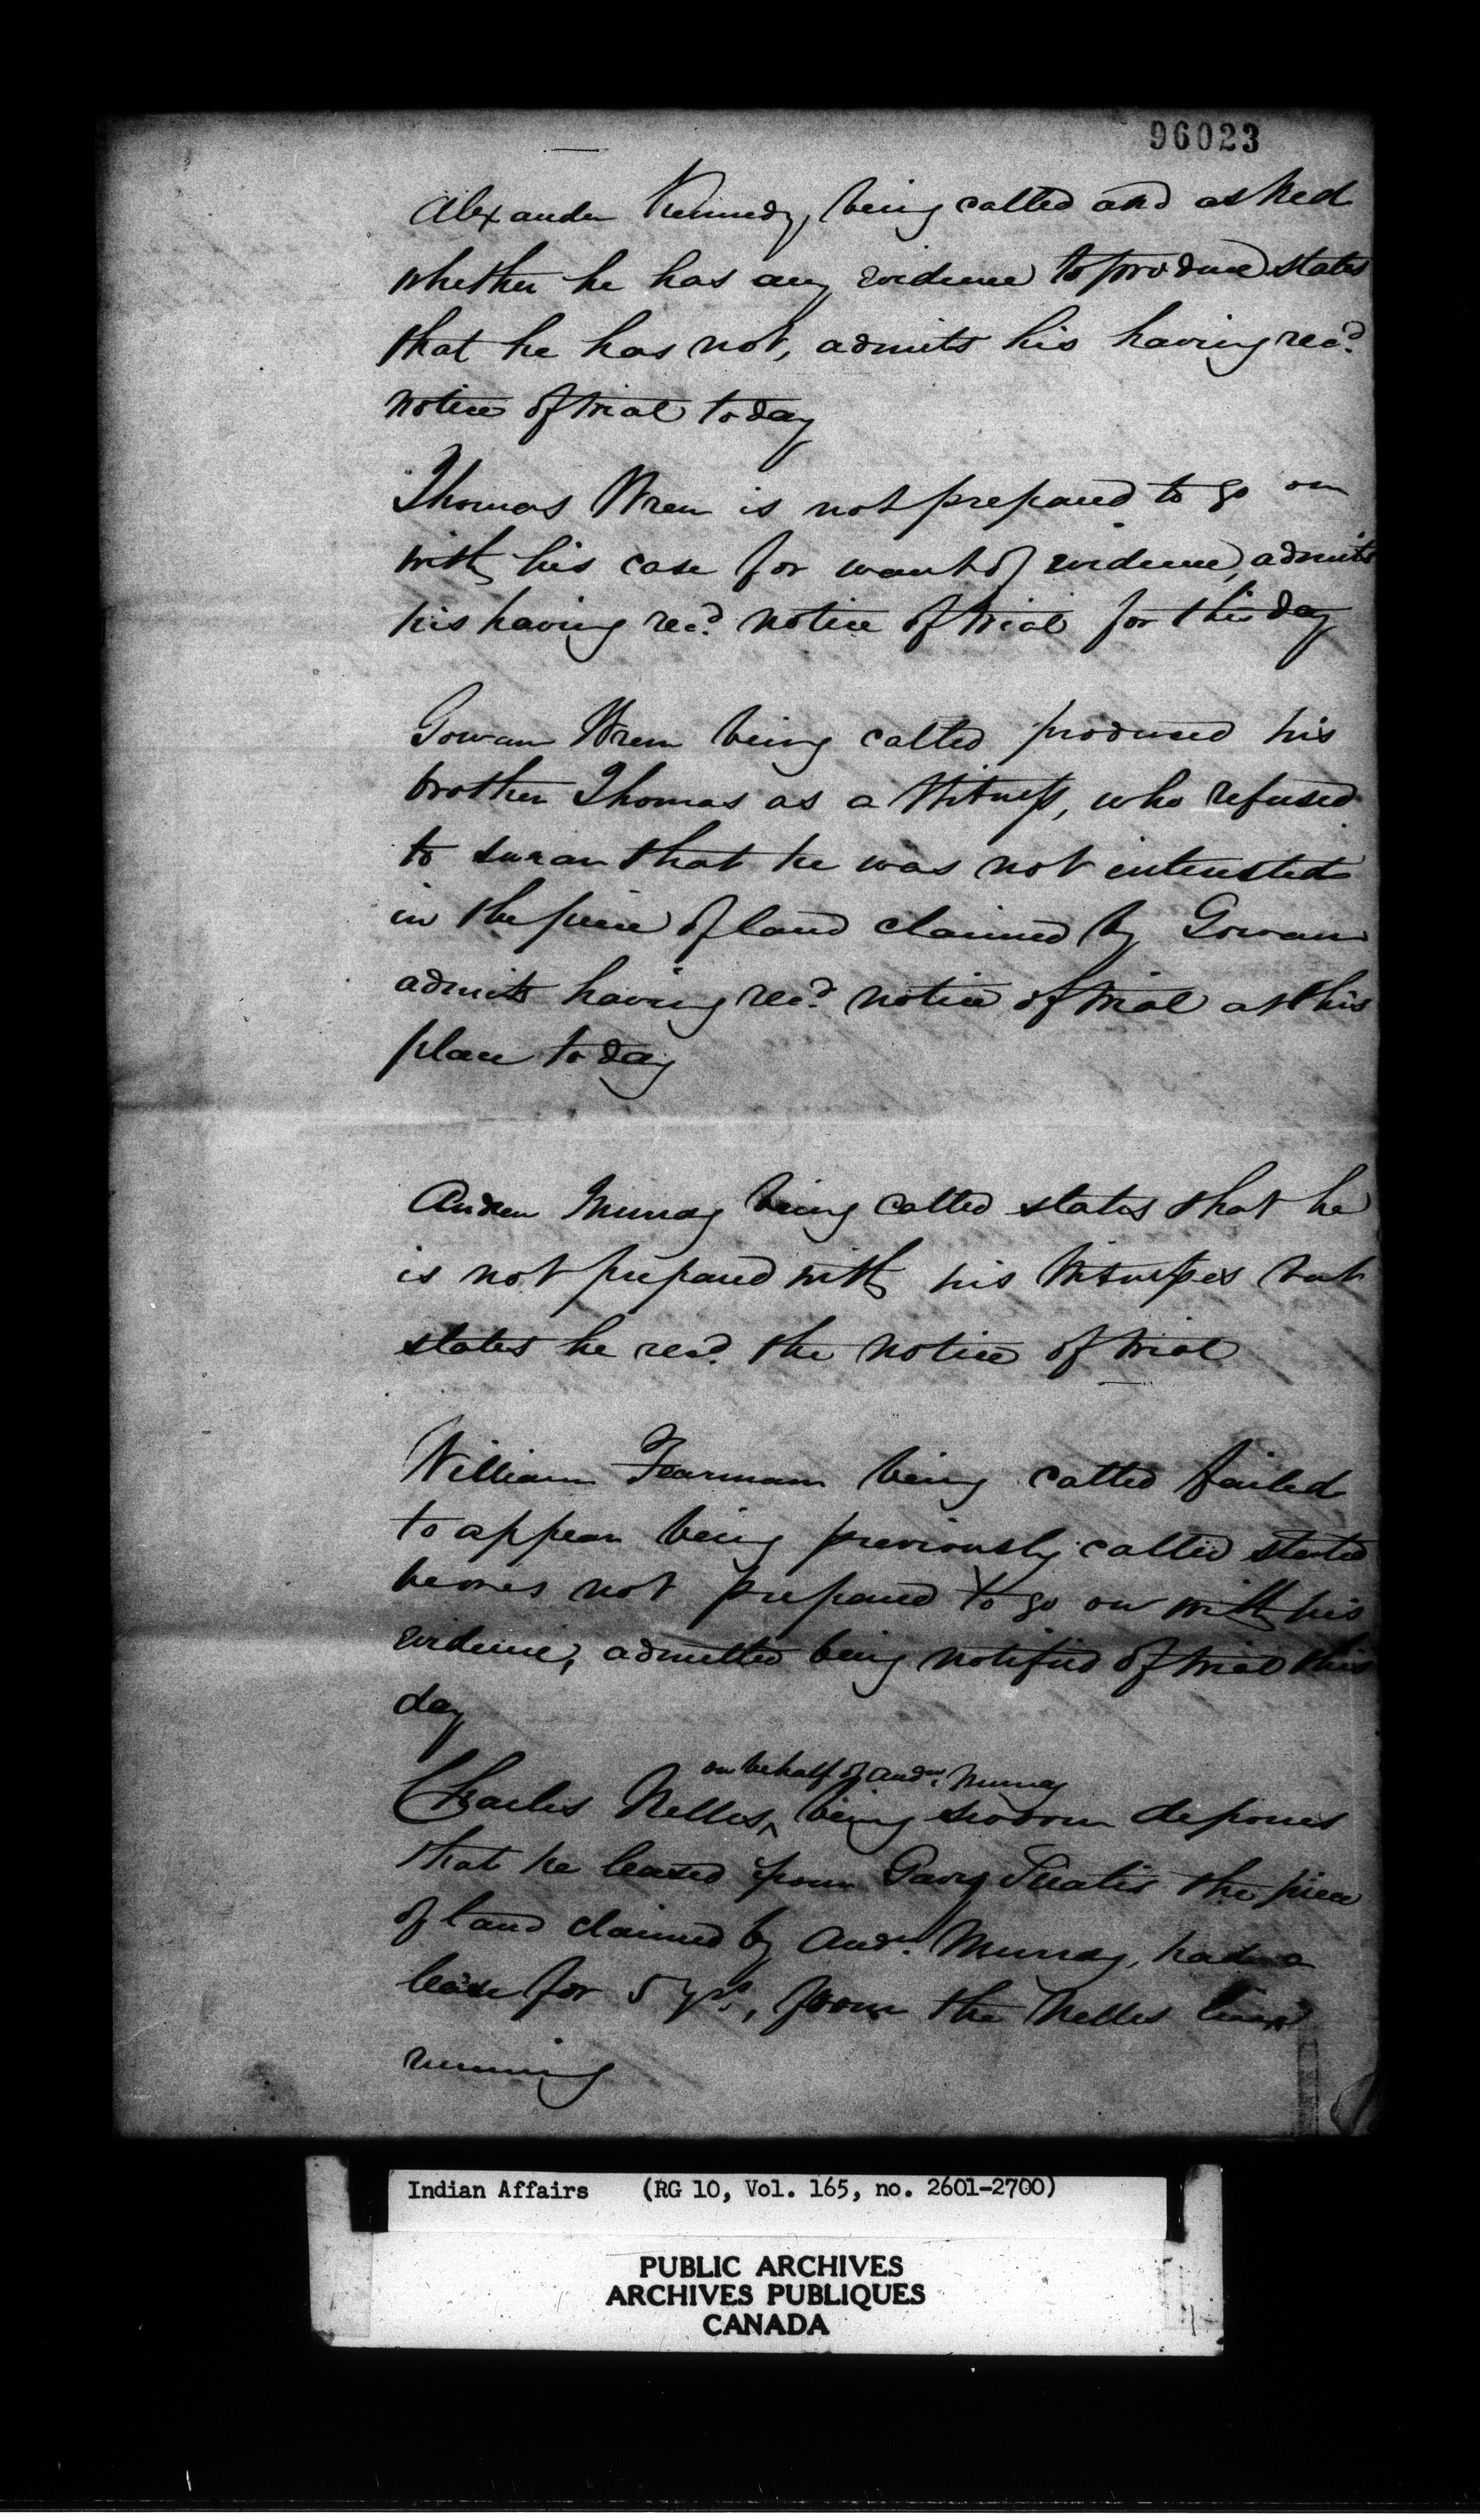 96023
Alexander Kennedy, being called and asked
whether he has any evidence to produce states
that he has not, admits his having recd.
notice of trial today
Thomas Wren is not prepared to go on
with his case for want of evidence, admits
his having recd. notice of trial for this day
Gowan Wren being called produced his
brother Thomas as a Witness, who refused
to swear that he was not interested
in the piece of land claimed by Gowan
admits having recd. notice of trial at this
place today
Andrew Murray being called states that he
is not prepared with his Witnesses but
states he recd. the notice of trial
William Fearman being called failed
to appear being previously called stated
he was not prepared to go on with his
evidence, admitted being notified of trial this
day
on behalf of Andw. Murray
Charles Nelles, being sworn depones
that he leased from the piece
of land claimed by Andw. Murray, had a
lease for 5 yrs., from the Nelles line
running
Indian Affairs (RG 10, Vol. 165, no. 2601-2700)
PUBLIC ARCHIVES
ARCHIVES PUBLIQUES
CANADA